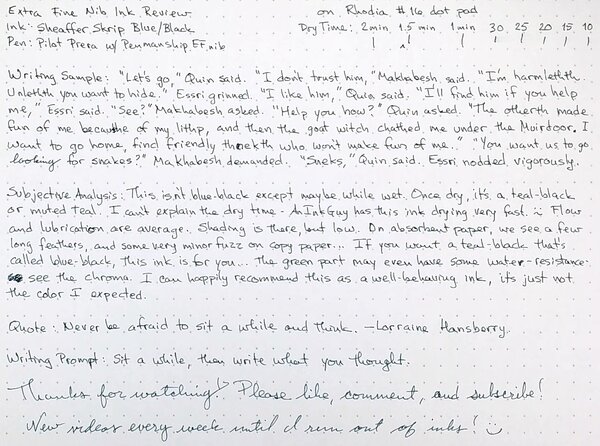 Extra Fine Nib Ink Review on Rhodia #16 dot pad
Ink: Sheaffer Skrip Blue/Black Dry Time: 2min 1.5 min 1 min 30 25 20 15 10
Pen: Pilot Prera w/ Penmanship EF nib
Writing Sample: "Let's go," Quin said. "I don't trust him," Makhabesh said. "I'm harmleththth.
Unleththth you want to hide." Essri grinned. "I like him," Quin said. "I'll find him if you help
me," Essri said. "See?" Makhabesh asked. "Help you how?" Quin asked. "The otherth made
fun of me becauthe of my lithp, and then the goat witch chathed me under the Muirdoor. I
want to go home, find friendly thnekth who won't make fun of me." "You want us to go
looking for snakes?" Makhabesh demanded. "Sneks," Quin said. Essri nodded, vigorously.
Subjective Analysis: This isn't blue-black except maybe while wet. Once dry, it's a teal-black
or muted teal. I can't explain the dry time - AnInkGuy has this ink drying very fast. :) Flow
and lubrication are average. Shading is there, but low. On absorbent paper, we see a few
long feathers, and some very minor fuzz on copy paper... If you want a teal-black that's
called blue-black, this ink is for you... The green part may even have some water-resistance-
see the chroma. I can happily recommend this as a well-behaving ink, it's just not
the color I expected.
Quote: Never be afraid to sit a while and think. -Lorraine Hansberry.
Writing Prompt: Sit a while, then write what you thought.
Thanks for watching! Please like, comment, and subscribe!
New videos every week until I run out of inks! :)